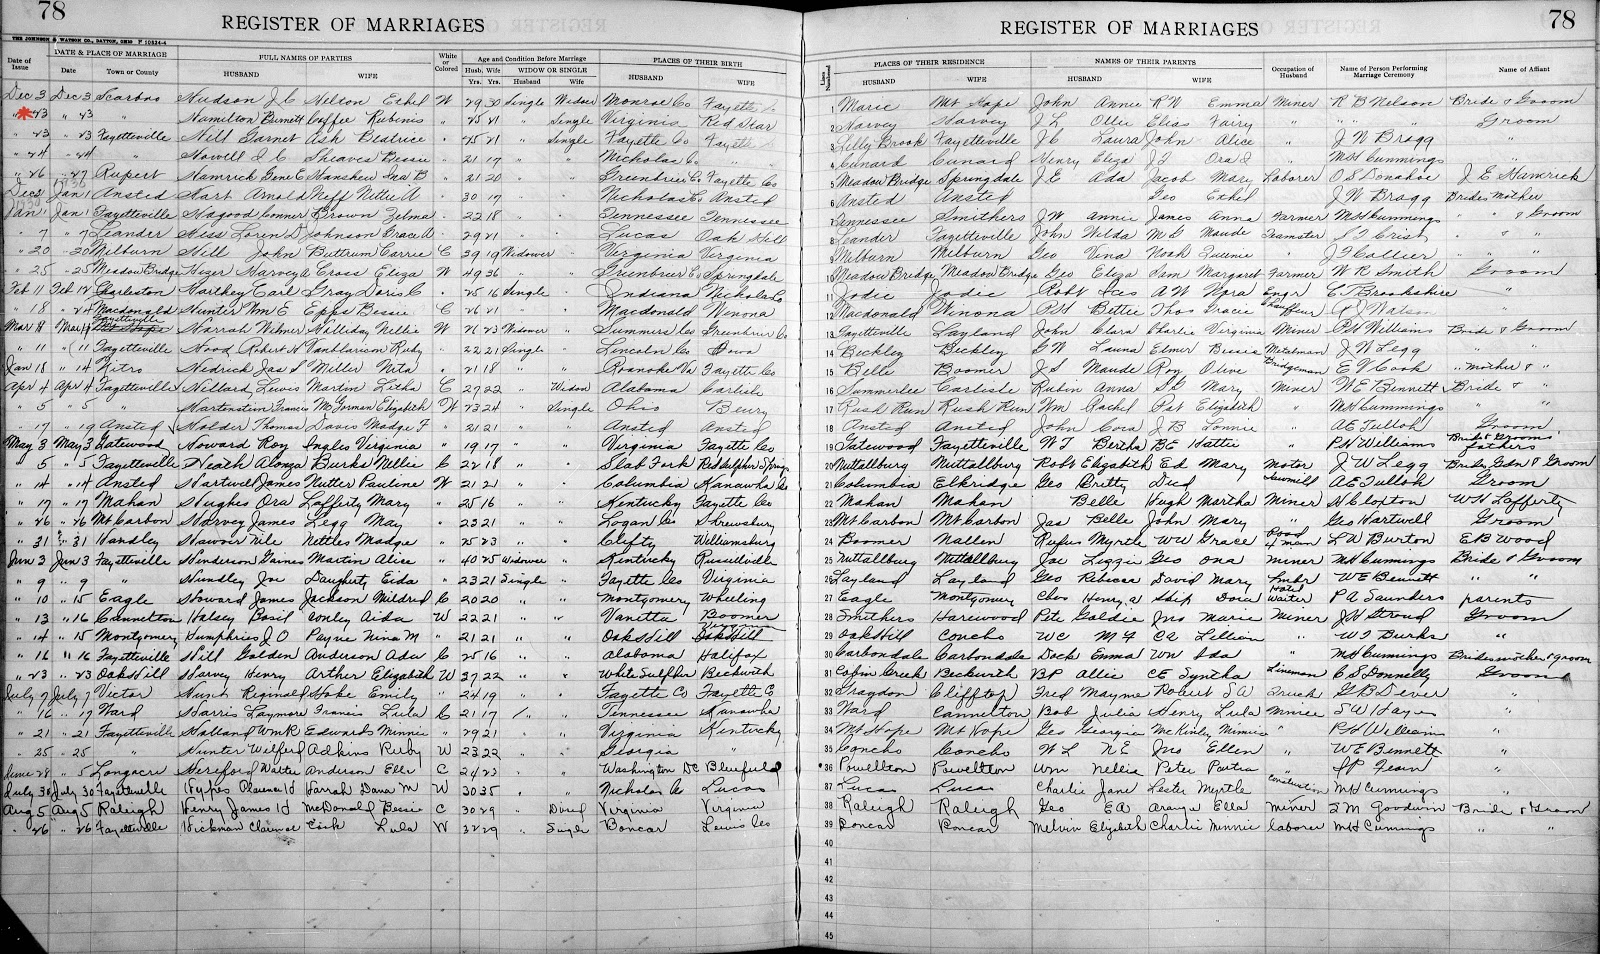 78
REGISTER OF MARRIAGES
THE JOHNSON & WATSON CO., DAYTON, OHIO F 10824-4
Date of Issue
DATE & PLACE OF MARRIAGE
Date
Town or County
FULL NAMES OF PARTIES
HUSBAND
WIFE
White or Colored
Age and Condition Before Marriage
Husb. Wife
WIDOW OR SINGLE
Yrs. Yrs. Husband Wife
PLACES OF THEIR BIRTH
HUSBAND
WIFE
Dec 3 Dec 3 Scarbro Hudson J C Nelson Ethel W 29 30 Single Widow Monroe Co Fayette
" 23 " 23 " Hamilton Burnett Coffee Rubenis " 25 21 " Single Virginia Red Star
" 23 " 23 Fayetteville Hill Garnet Ash Beatrice " 25 21 " Single Fayette Co Fayette
" 24 " 24 " Howell I C Sheaves Bessie " 21 17 " " Nicholas Co " "
" 26 " 27 Rupert Hamrick Gene E Hanshew Ina B " 21 20 " " Greenbrier Co Fayette Co
Dec 31 Jan 1 Ansted Hart Arnold Neff Nettie " 30 17 " " Nicholas Co Ansted
Jan 1 Jan 1 Fayetteville Hagood Conner Brown Zelma " 22 18 " " Tennessee Tennessee
" 7 " 7 Leander Hess Loren D Johnson Grace " 29 21 " " Lucas Oak Hill
" 20 " 20 Milburn Hill John Buttrum Carrie C 39 19 Widower " Virginia Virginia
" 25 " 25 Meadow Bridge Heger Harvey A Cross Eliza W 49 36 " " Greenbrier Co Springdale
Feb 11 Feb 12 Charleston Harthey Carl Gray Doris C " 25 16 Single " Indiana Nicholas Co
" 18 " 24 Macdonald Hunter Wm E Epps Bessie C 26 21 " " Macdonald Winona
Mar 8 Mar Fayetteville Harrah Wilmer Holliday Nellie W 21 23 Widower " Summers Co Greenbrier Co
" 11 " 11 Fayetteville Hood Robert H Vanblaricom Ruby " 22 21 Single " Lincoln Co Iowa
Jan 18 " 14 Nitro Hedrick Jas S Miller Nita " 21 18 " " Roanoke Va Fayette Co
Apr 4 Apr 4 Fayetteville Hillard Lewis Martin Litha C 27 22 " Widow Alabama Carlisle
" 5 " 5 " Hartenstein Francis McGorman Elizabeth W 23 24 " Single Ohio Beury
" 17 " 19 Ansted Holder Thomas Davis Madge F " 21 21 " " Ansted Ansted
May 3 May 3 Gatewood Howard Roy Ingles Virginia " 19 17 " " Virginia Fayette Co
" 5 " 5 Fayetteville Heath Alonza Burks Nellie C 22 18 " " Slab Fork Red Sulphur Springs
" 14 " 14 Ansted Hartwell James Nutter Pauline W 21 21 " " Columbia Kanawha Co
" 17 " 17 Mahan Hughes Ora Lafferty Mary " 25 16 " " Kentucky Fayette Co
" 26 " 26 Mt Carbon Harvey James Legg May " 23 21 " " Logan Co Shrewsbury
" 31 " 31 Handley Havoir Nile Nettles Madge " 25 23 " " Clifty Williamsburg
Jun 3 Jun 3 Fayetteville Henderson Gaines Martin Alice " 40 25 Widower " Kentucky Russellville
" 9 " 9 " Hundley Joe Daugherty Eida " 23 21 Single " Fayette Co Virginia
" 10 " 15 Eagle Howard James Jackson Mildred C 20 20 " " Montgomery Wheeling
" 13 " 16 Cannelton Halsey Basil Conley Aida W 22 21 " " Vanetta Boomer
" 14 " 15 Montgomery Humphries J O Payne Nina M " 21 21 " " Oak Hill Oak Hill
" 16 " 16 Fayetteville Hill Golden Anderson Ada C 25 16 " " Alabama Halifax
" 23 " 23 Oak Hill Harvey Henry Arthur Elizabeth W 37 22 " " White Sulphur Beckwith
July 7 July 7 Victor Hunt Reginal Hoke Emily " 24 19 " " Fayette Co Fayette Co
" 16 " 17 Ward Harris Laymore Francis Lula C 21 17 " " Tennessee Kanawha
" 21 " 21 Fayetteville Holland Wm R Edwards Minnie " 29 21 " " Virginia Kentucky
" 25 " 25 " Hunter Welford Adkins Ruby W 23 22 " " Georgia "
June 28 " 5 Longacre Hereford Walter Anderson Ella C 24 23 " " Washington DC Bluefield
July 30 July 30 Fayetteville Hypes Clarence H Harrah Dana M W 30 35 " " Nicholas Co Lucas
Aug 5 Aug 5 Raleigh Henry James H McDonald Bessie C 30 29 " Divcd Virginia Virginia
" 26 " 26 Fayetteville Hickman Clarence Cook Lula W 32 29 " Single Boncar Lewis Co
REGISTER OF MARRIAGES
78
Line Number
PLACES OF THEIR RESIDENCE
HUSBAND
WIFE
NAMES OF THEIR PARENTS
HUSBAND
WIFE
Occupation of Husband
Name of Person Performing Marriage Ceremony
Name of Affiant
1 Marie Mt Hope John Annie R W Emma Miner R B Nelson Bride & Groom
2 Harvey Harvey J L Ollie Elias Fairy " " " " Groom
3 Lilly Brook Fayetteville J C Laura John Alice " J W Bragg "
4 Cunard Cunard Henry Eliza J F Ora " M H Cummings "
5 Meadow Bridge Springdale J E Ada Jacob Mary Laborer O S Donahoe J E Hamrick
6 Ansted Ansted Geo Ethel J W Bragg Brides Mother
7 Tennessee Smithers J W Annie James Anna Farmer M H Cummings " & Groom
8 Leander Fayetteville John Hilda M C Maude Teamster Crist " & "
9 Milburn Milburn Geo Vina Noah Queenie " J F Collier " "
10 Meadow Bridge Meadow Bridge Geo Eliza Sam Margaret Farmer W R Smith Groom
11 Jodie Jodie Robt Ices A W Nora Engr C T Brookshire "
12 Macdonald Winona P H Bettie Thos Gracie Chauffeur Watson "
13 Fayetteville Layland John Clara Charlie Virginia Miner P H Williams Bride & Groom
14 Beckley Beckley G W Launa Elmer Bessie Metalman J W Legg " "
15 Belle Boomer J S Maude Roy Olive Bridgeman E V Cook " mother & "
16 Summerlee Carlisle Rubin Anna S G Mary Miner W E Bennett Bride & "
17 Rush Run Rush Run Wm Rachel Pat Elizabeth " M H Cummings " "
18 Ansted Ansted John Cora J B Lonnie " A E Tulloh Groom
19 Gatewood Fayetteville W T Bertha B E Hattie " P H Williams Bride & Grooms fathers
20 Nuttallburg Nuttallburg Robt Elizabeth Ed Mary Motor J W Legg Brides Gdn & Groom
21 Columbia Elkridge Geo Bretty Dud Sawmill A E Tulloh Groom
22 Mahan Mahan Belle Hugh Martha Miner H Cloxton W H Lafferty
23 Mt Carbon Mt Carbon Jas Belle John Mary " Geo Hartwell Groom
24 Boomer Nallen Rufus Myrtle W W Grace L W Burton E B Wood
25 Nuttallburg Nuttallburg Joe Lizzie Geo Ona miner M H Cummings Bride & Groom
26 Layland Layland Geo Rebecca David Mary Lmbr W E Bennett " "
27 Eagle Montgomery Chas Henry a Skip Dora Hotel Waiter P A Saunders parents
28 Smithers Harewood Pete Goldie Jno Marie miner J H Stroud Groom
29 Oak Hill Concho W C M F C A Lillian " W F Burks "
30 Carbondale Carbondale Dock Emma Wm Ida " M H Cummings Brides mother & groom
31 Cabin Creek Beckwith B P Allie C E Syntha Lineman C S Donnelly Groom
32 Clifftop Fred Mayme Robert S A Truck G B Deever "
33 Ward Cannelton Bob Julia Henry Lula miner S W Hayes "
34 Mt Hope Mt Hope Geo Georgia McKinley Minnie " P H Williams "
35 Concho Concho W L N E Jno Ellen " W E Bennett "
36 Powellton Powellton Wm Nellie Peter Portia " J P Fearn "
37 Lucas Lucas Charlie Jane Lester Myrtle construction M H Cummings "
38 Raleigh Raleigh Geo E A Ella miner S M Goodwin Bride & Groom
39 Boncar Boncar Melvin Elizabeth Charlie Minnie laborer M H Cummings " "
40
41
42
43
44
45